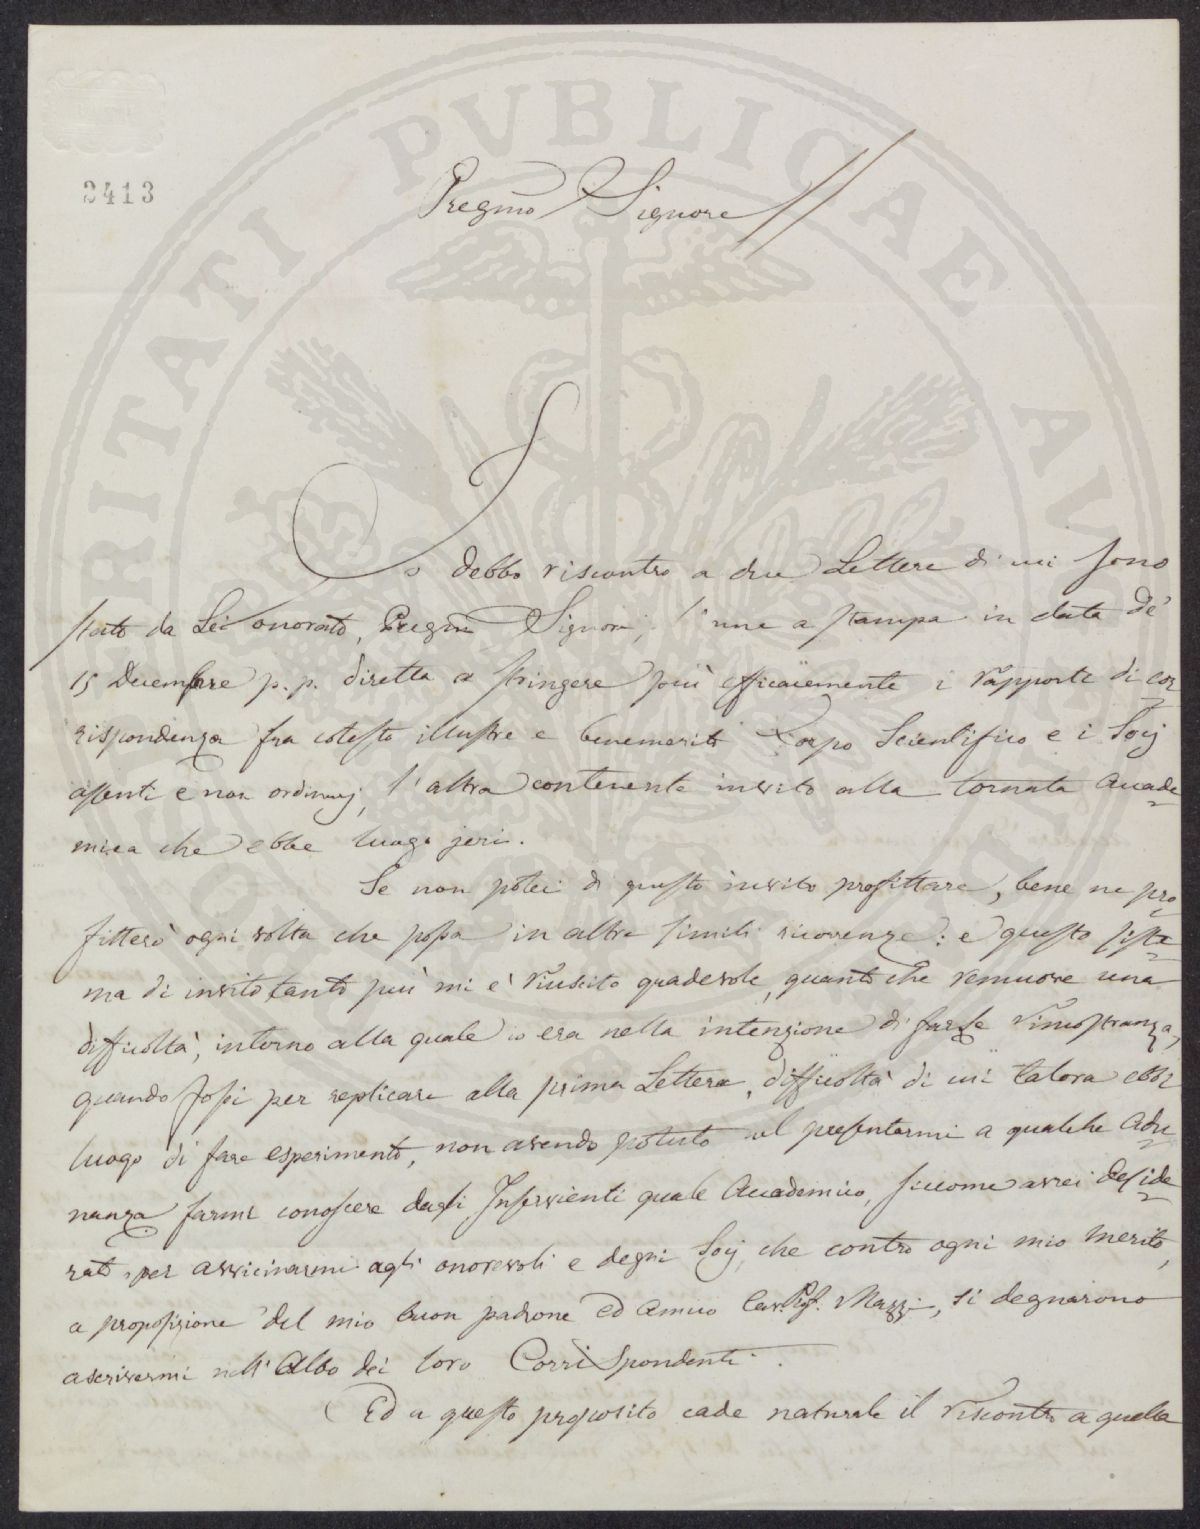 PROSPERITATI PVBLICAE AVGENDAE
2413
Pregmo Signore
Io debbo riscontro a due Lettere di cui sono
stato da Lei onorato, Pregmo Signore, l'una a stampa in data de'
15 Decembre p.p. diretta a stringere più efficacemente i rapporti di cor
rispondenza fra cotesto illustre e benemerito Corpo Scientifico e i Socj
assenti e non ordinarj, l'altra contenente invito alla tornata Accade
mica che ebbe luogo jeri.
Se non potei di questo invito profittare, bene ne pro
fitterò ogni volta che possa in altre simili ricorrenze: e questo siste
ma di invito tanto più mi è riuscito gradevole, quanto che remuove una
difficoltà, intorno alla quale io era nella intenzione di farle rimostranza,
quando fossi per replicare alla prima Lettera, difficoltà di cui talora ebbi
luogo di fare esperimento, non avendo potuto nel presentarmi a qualche adu
nanza farmi conoscere dagli Inservienti quale Accademico, siccome avrei deside
rato per avvicinarmi agli onorevoli e degni Socj, che contro ogni mio merito,
a proposizione del mio buon padrone ed amico Cav. Prof. Mazzi, si degnarono
ascrivermi nell'Albo dei loro Corrispondenti.
Ed a questo proposito cade naturale il riscontro a quella